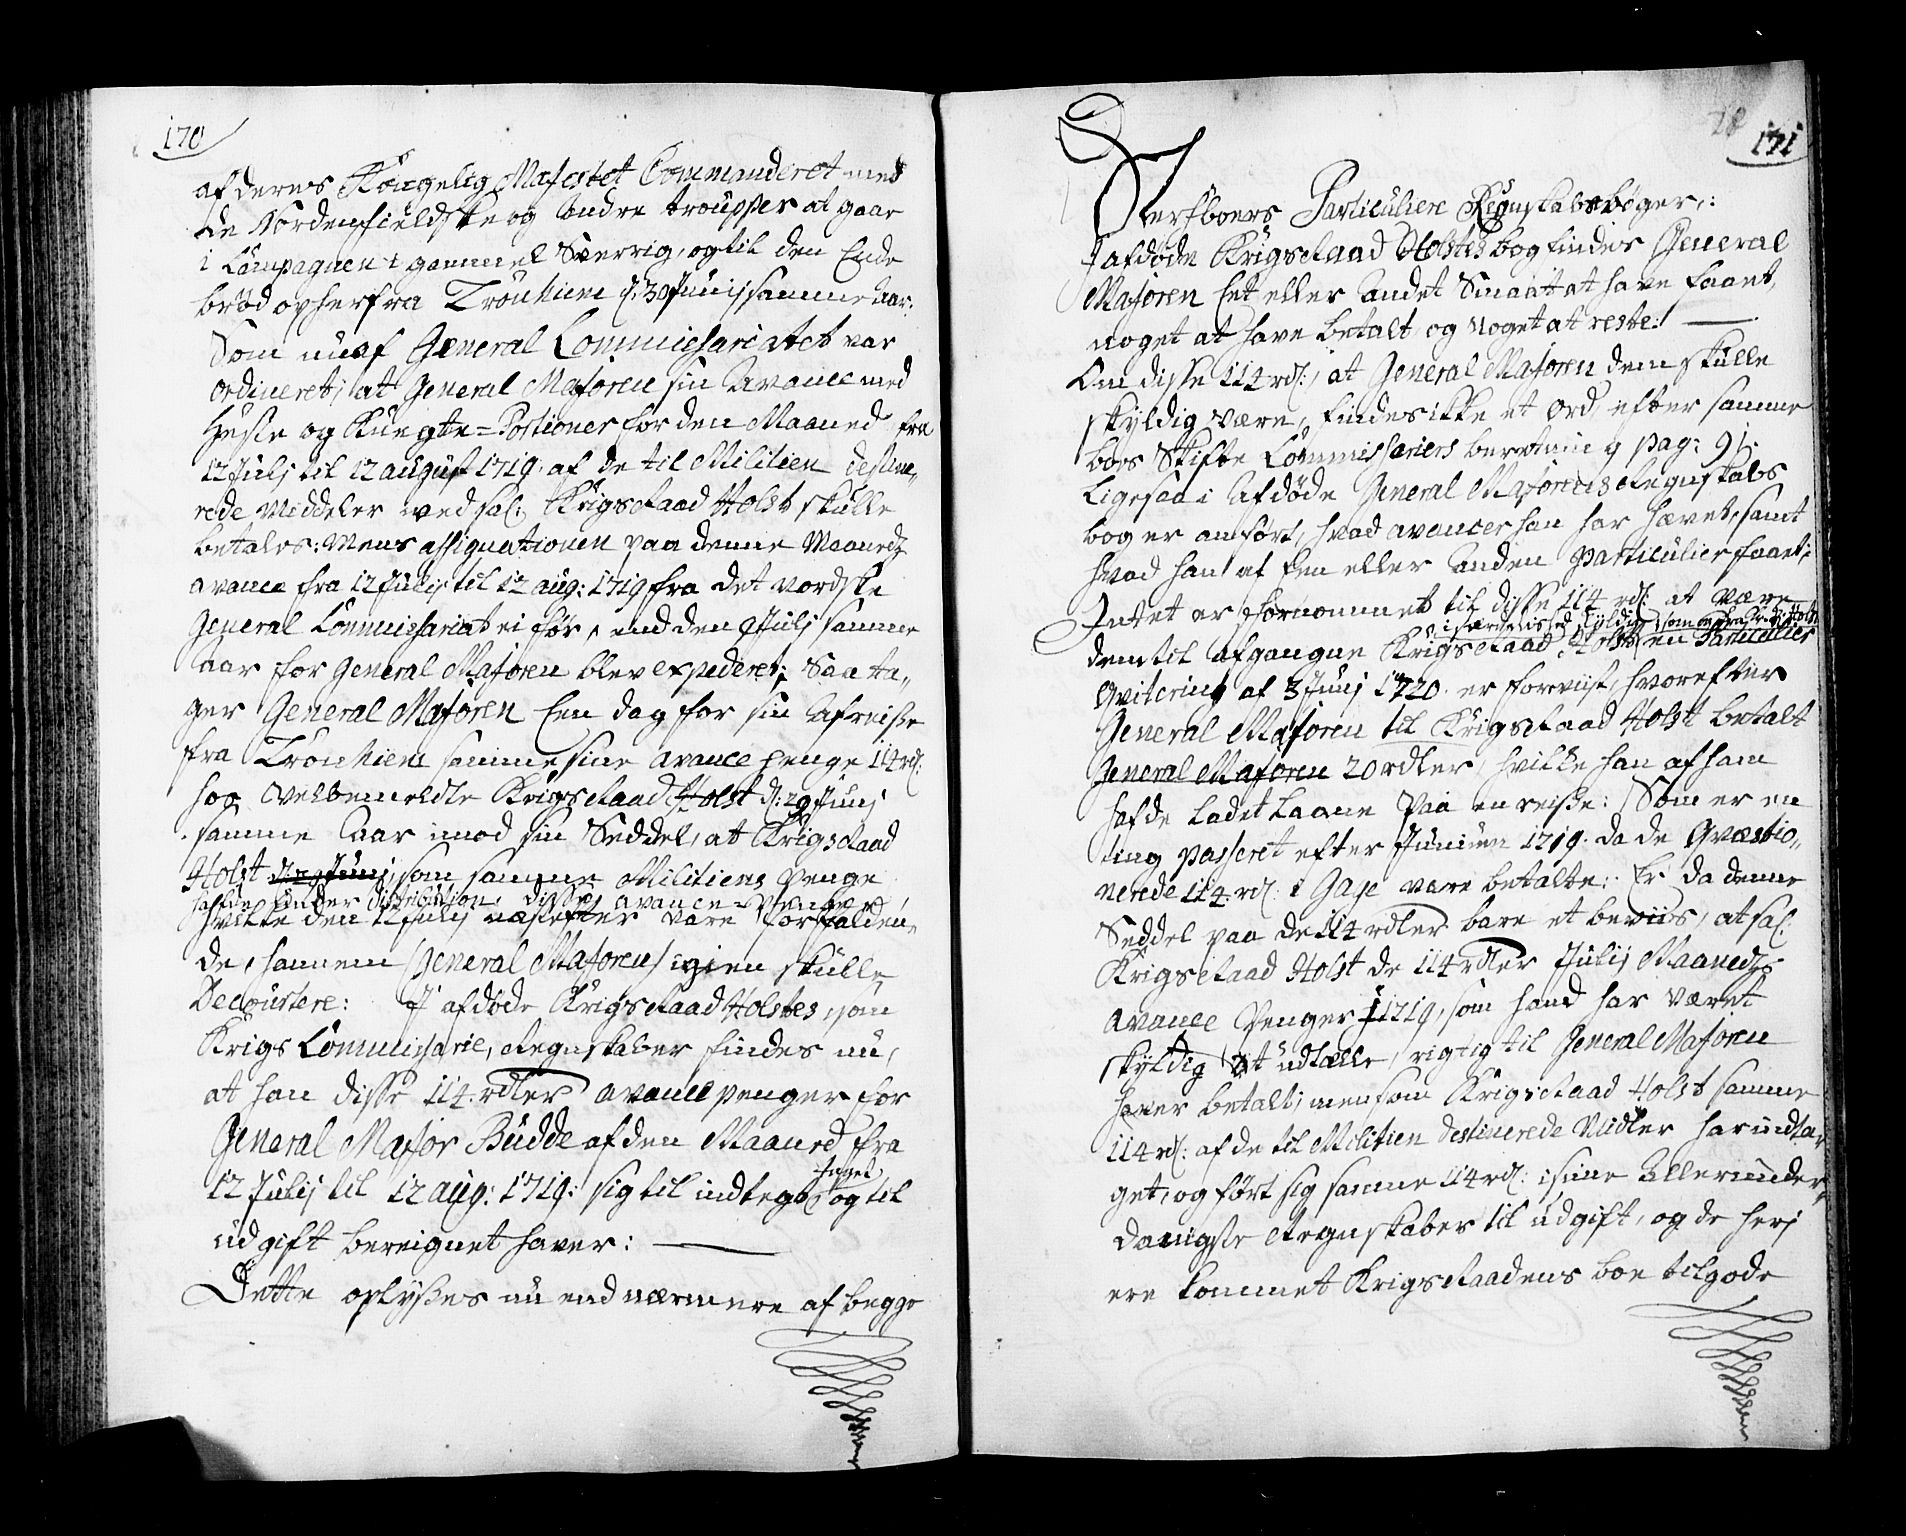 170
af deres Kongelig Majestet Commanderet med
de Nordenfieldske og andre troupper at gaae
i Campagnen i gammel Sverrig, og til den Ende
brød op her fra Tronhiem d: 30 Junij samme Aar:
Som nu af General Commissariatet var
ordineret, at General Majoren sin Avance med
Heste og Knegte-Portioner for den Maaned fra
12 Julj til 12 august 1719. af de til Militien destine-
rede Middeler ved sal: Krigs Raad Holst skulle
betales: Mens assignationen paa denne Maanedz
avance fra 12 Julij til 12 aug: 1719 fra det Nordske
General Commissariat ei før, end den Julj samme
Aar for General Majoren blev expederet; Saa ta-
ger General Majoren Een dag for sin Afreisse
fra Tronhiem samme sine avance penge 114 rd:
hos velbemeldte Krigs Raad Holst d: 29 Junj
samme Aar imod sin Seddel, at Krigs Raad
Holst som samme Militiens penge
hafde under distribution, disse avance-Penger
hvilke den 12 Julij næstefter vare forfalden-
de, hannem /General Majoren/ igien skulle
Decourtere: I afdøde Krigs Raad Holstes, som
Krigs Commissarie, Regnskaber findes nu,
at han disse 114. rdler avance penger for
General Major Budde af den Maaned fra
12 Julij til 12 aug: 1719: sig til indtegt taget og til
udgift bereignet haver:
Dette oplyses nu end nærmere af begge
171
Sterfboers Particuliere Regnskabsbøger,:
I afdøde Krigs Raad Holstes bog findes General
Majoren Eet eller Andet Smaat at have faaet,
noget at have betalt, og noget at reste:
Om disse 114 rd:, at General Majoren dem skulle
skyldig være, findes ikke et ord, efter samme
boes Skifte Commissariers beretning pag: 91:
Ligesaa i Afdøde General Majorens Regnskabs
bog er anført, hvad avancer han har hævet, samt
hvad han af Een eller Anden Particulier faaet;
Intet er fornommet til disse 114 rd: at være
skyldig, som
dem til afgangne Krigs Raad Holst en Particulier
Qvitering af 3 Junj 1720. er forviist, hvorefter
General Majoren til Krigs Raad Holst betalt
General Majoren 20 rdler, hvilke han af ham
hafde ladet laane paa en reisse: Som er en
ting passeret efter Junien 1719. da de Qvæstio-
nerede 114. rd: i Gage vare betalte: Er da denne
Seddel paa de 114 rdler bare et beviis, at sal:
Krigs Raad Holst de 114 rdler Julij Maanedz
avance Penger 1719, som hand har været
skyldig at udtælle, rigtig til General Majoren
haver betalt; men som Krigs Raad Holst samme
114 rd: af de til Militien Destinerede Midler har indta-
get, og ført sig samme 114 rd: i sine Allerunder-
danigste Regnskaber til udgift, og de herj
ere kommet Krigs Raadens boe tilgode